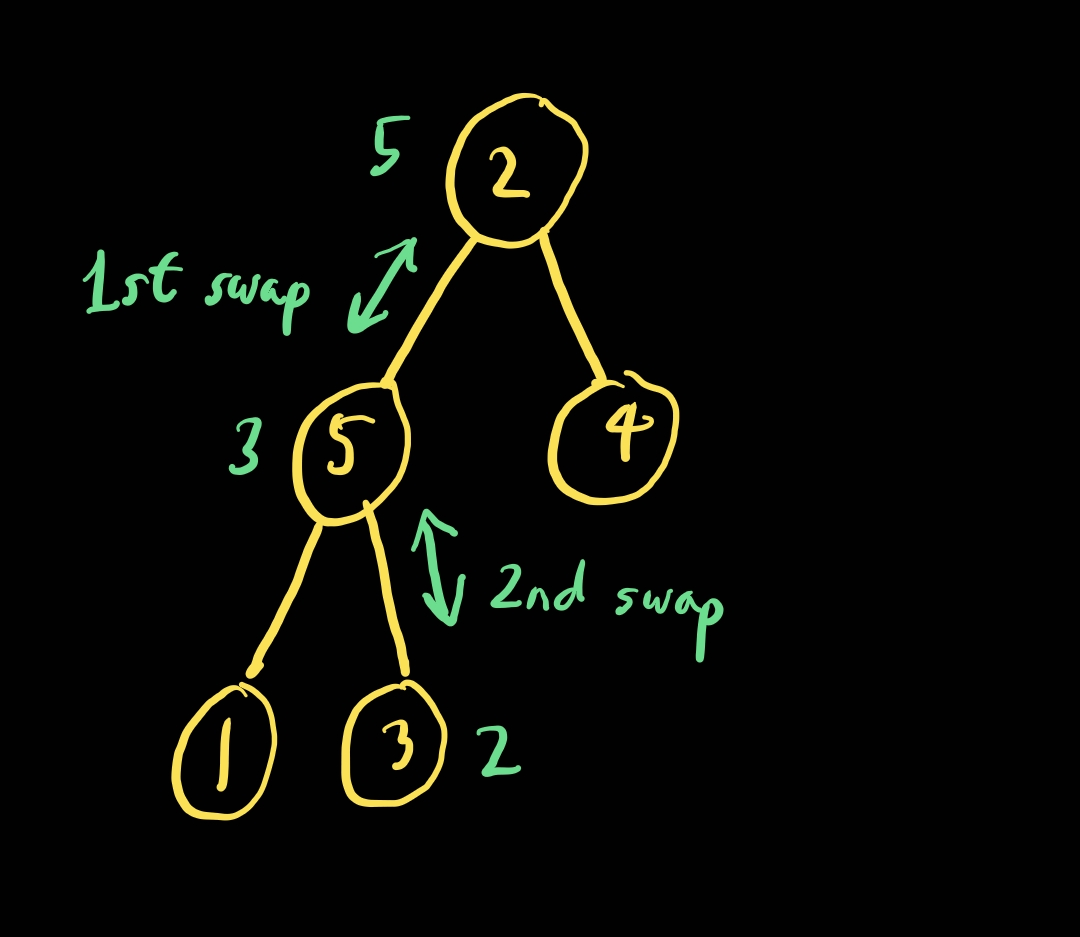 5
2
1st swap
3
5
4
2nd swap
1
3
2